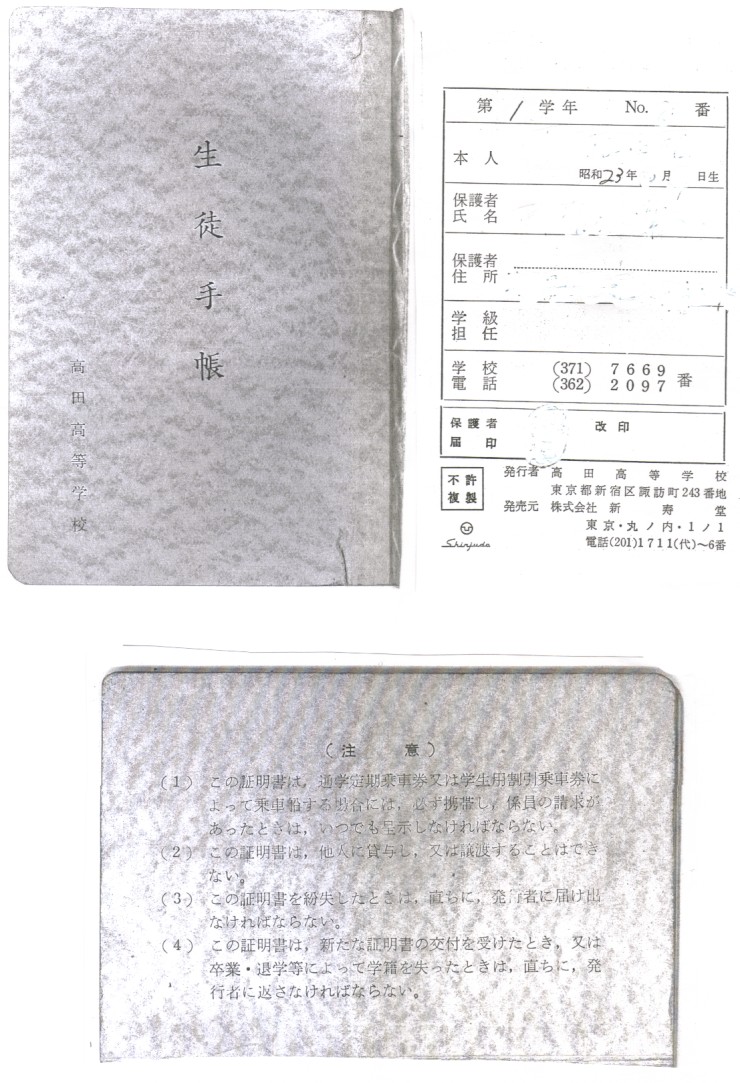 生徒手帳
高田高等学校
第 1 学年 No. 番
本人
昭和23年 月 日生
保護者
氏名
保護者
住所
学級
担任
学校 (371) 7669
電話 (362) 2097 番
保護者
届印
改印
不許
複製
発行者 高田高等学校
東京都新宿区諏訪町243番地
発売元 株式会社 新寿堂
東京・丸ノ内・1ノ1
電話(201)1711(代)~6番
Shinjudo
(注意)
(1) この証明書は,通学定期乗車券又は学生用割引乗車券に
よって乗車船する場合には,必ず携帯し,係員の請求が
あったときは,いつでも呈示しなければならない。
(2) この証明書は,他人に貸与し,又は譲渡することはでき
ない。
(3) この証明書を紛失したときは,直ちに,発行者に届け出
なければならない。
(4) この証明書は,新たな証明書の交付を受けたとき,又は
卒業・退学等によって学籍を失ったときは,直ちに,発
行者に返さなければならない。